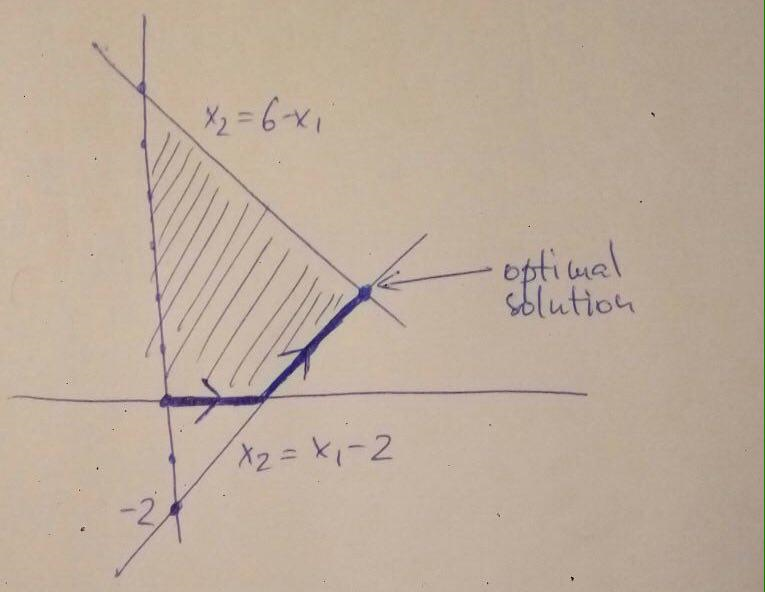 x₂ = 6-x₁
optimal
solution
x₂ = x₁-2
-2